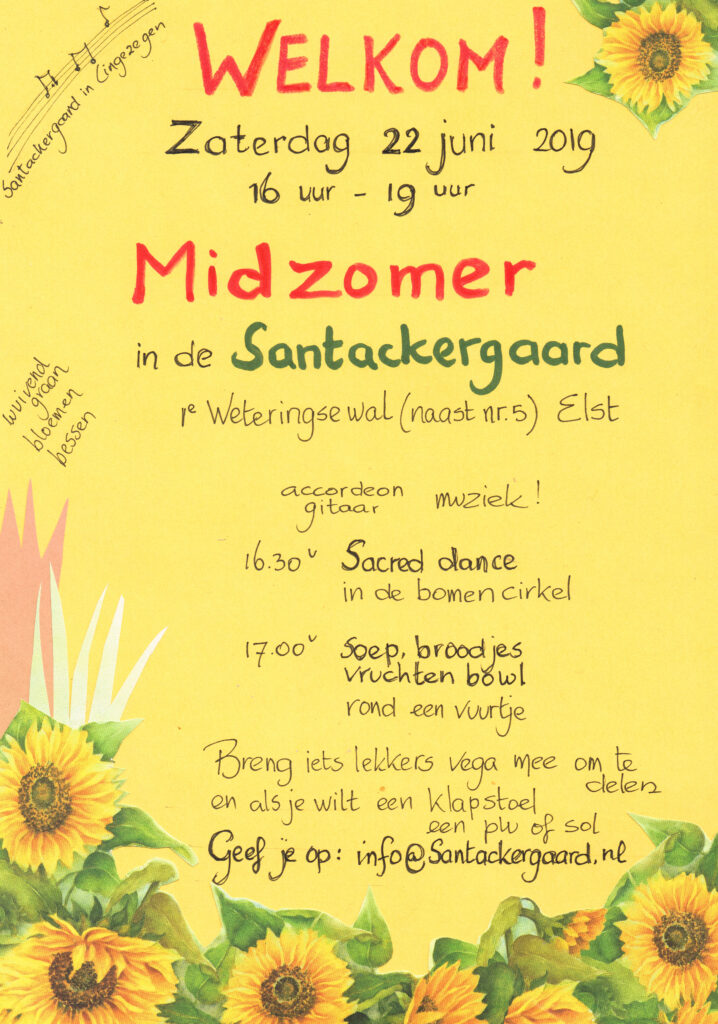 Santackergaard in Lingezegen
WELKOM!
Zaterdag 22 juni 2019
16 uur - 19 uur
Midzomer
in de Santackergaard
1e Weteringsewal (naast nr.5) Elst
wuivend
graan
bloemen
bessen
accordeon
gitaar
muziek!
16.30u Sacred dance
in de bomencirkel
17.00u Soep, broodjes
vruchten bowl
rond een vuurtje
Breng iets lekkers vega mee om te
delen
en als je wilt een klapstoel
een plu of sol
Geef je op: info@Santackergaard.nl